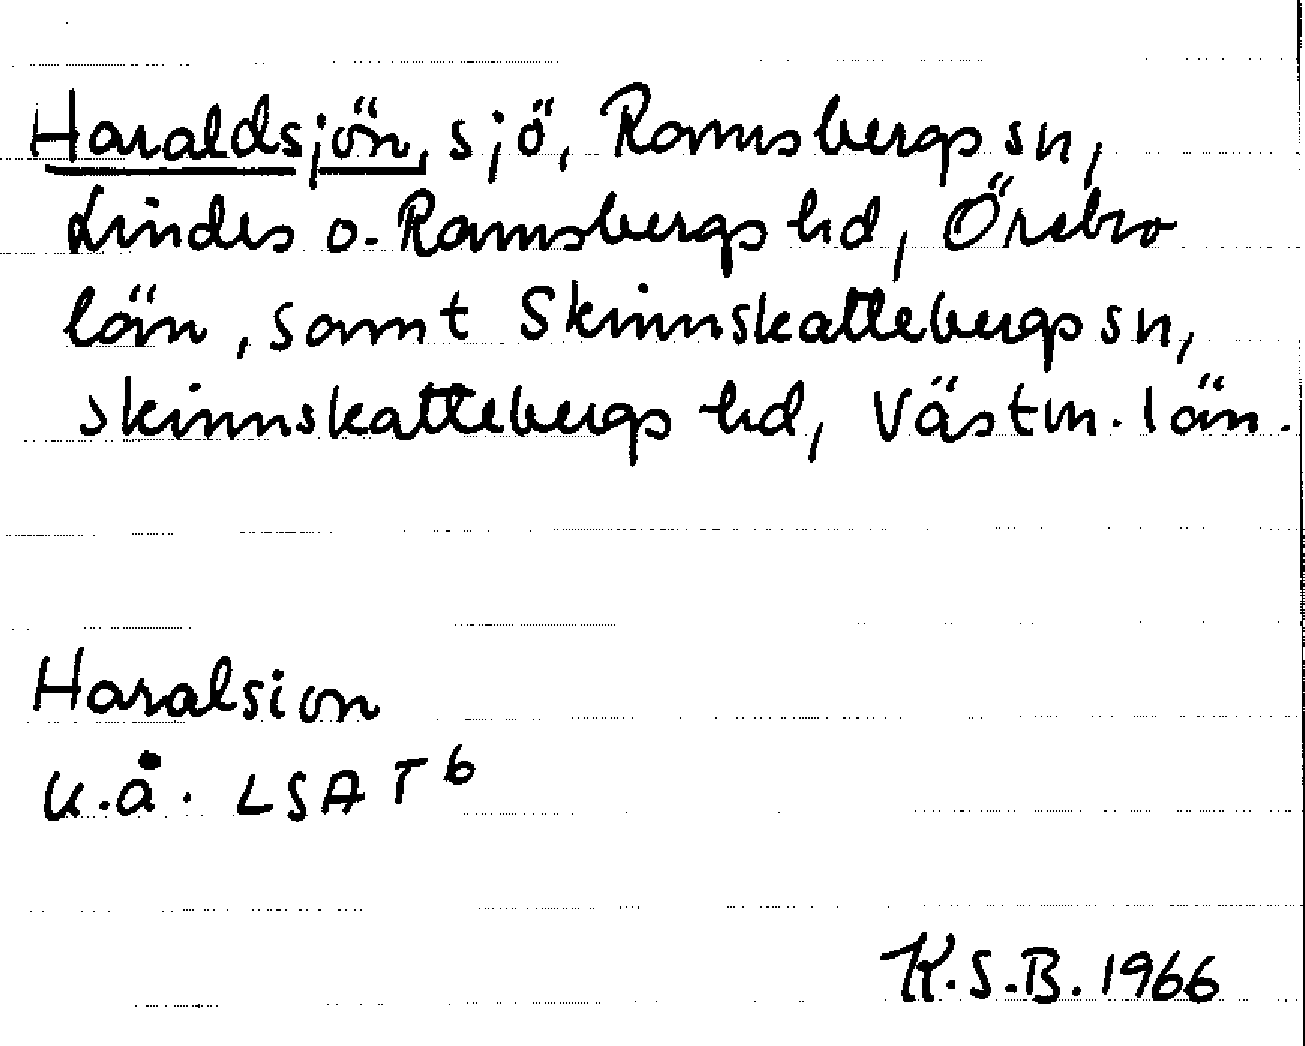 Haraldsjön, sjö, Ramsbergs sn,
Lindes o. Ramsbergs hd, Örebro
län, samt Skinnskattebergs sn,
Skinnskattebergs hd, Västm. län.
Haralsion
u.å. LSA T 6
K.S.B. 1966